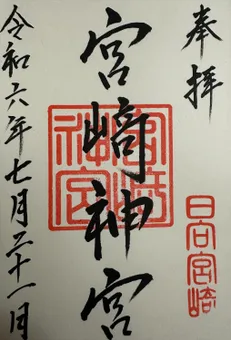 奉拝
宮﨑神宮
令和六年七月二十一日
宮崎神宮
日向宮崎